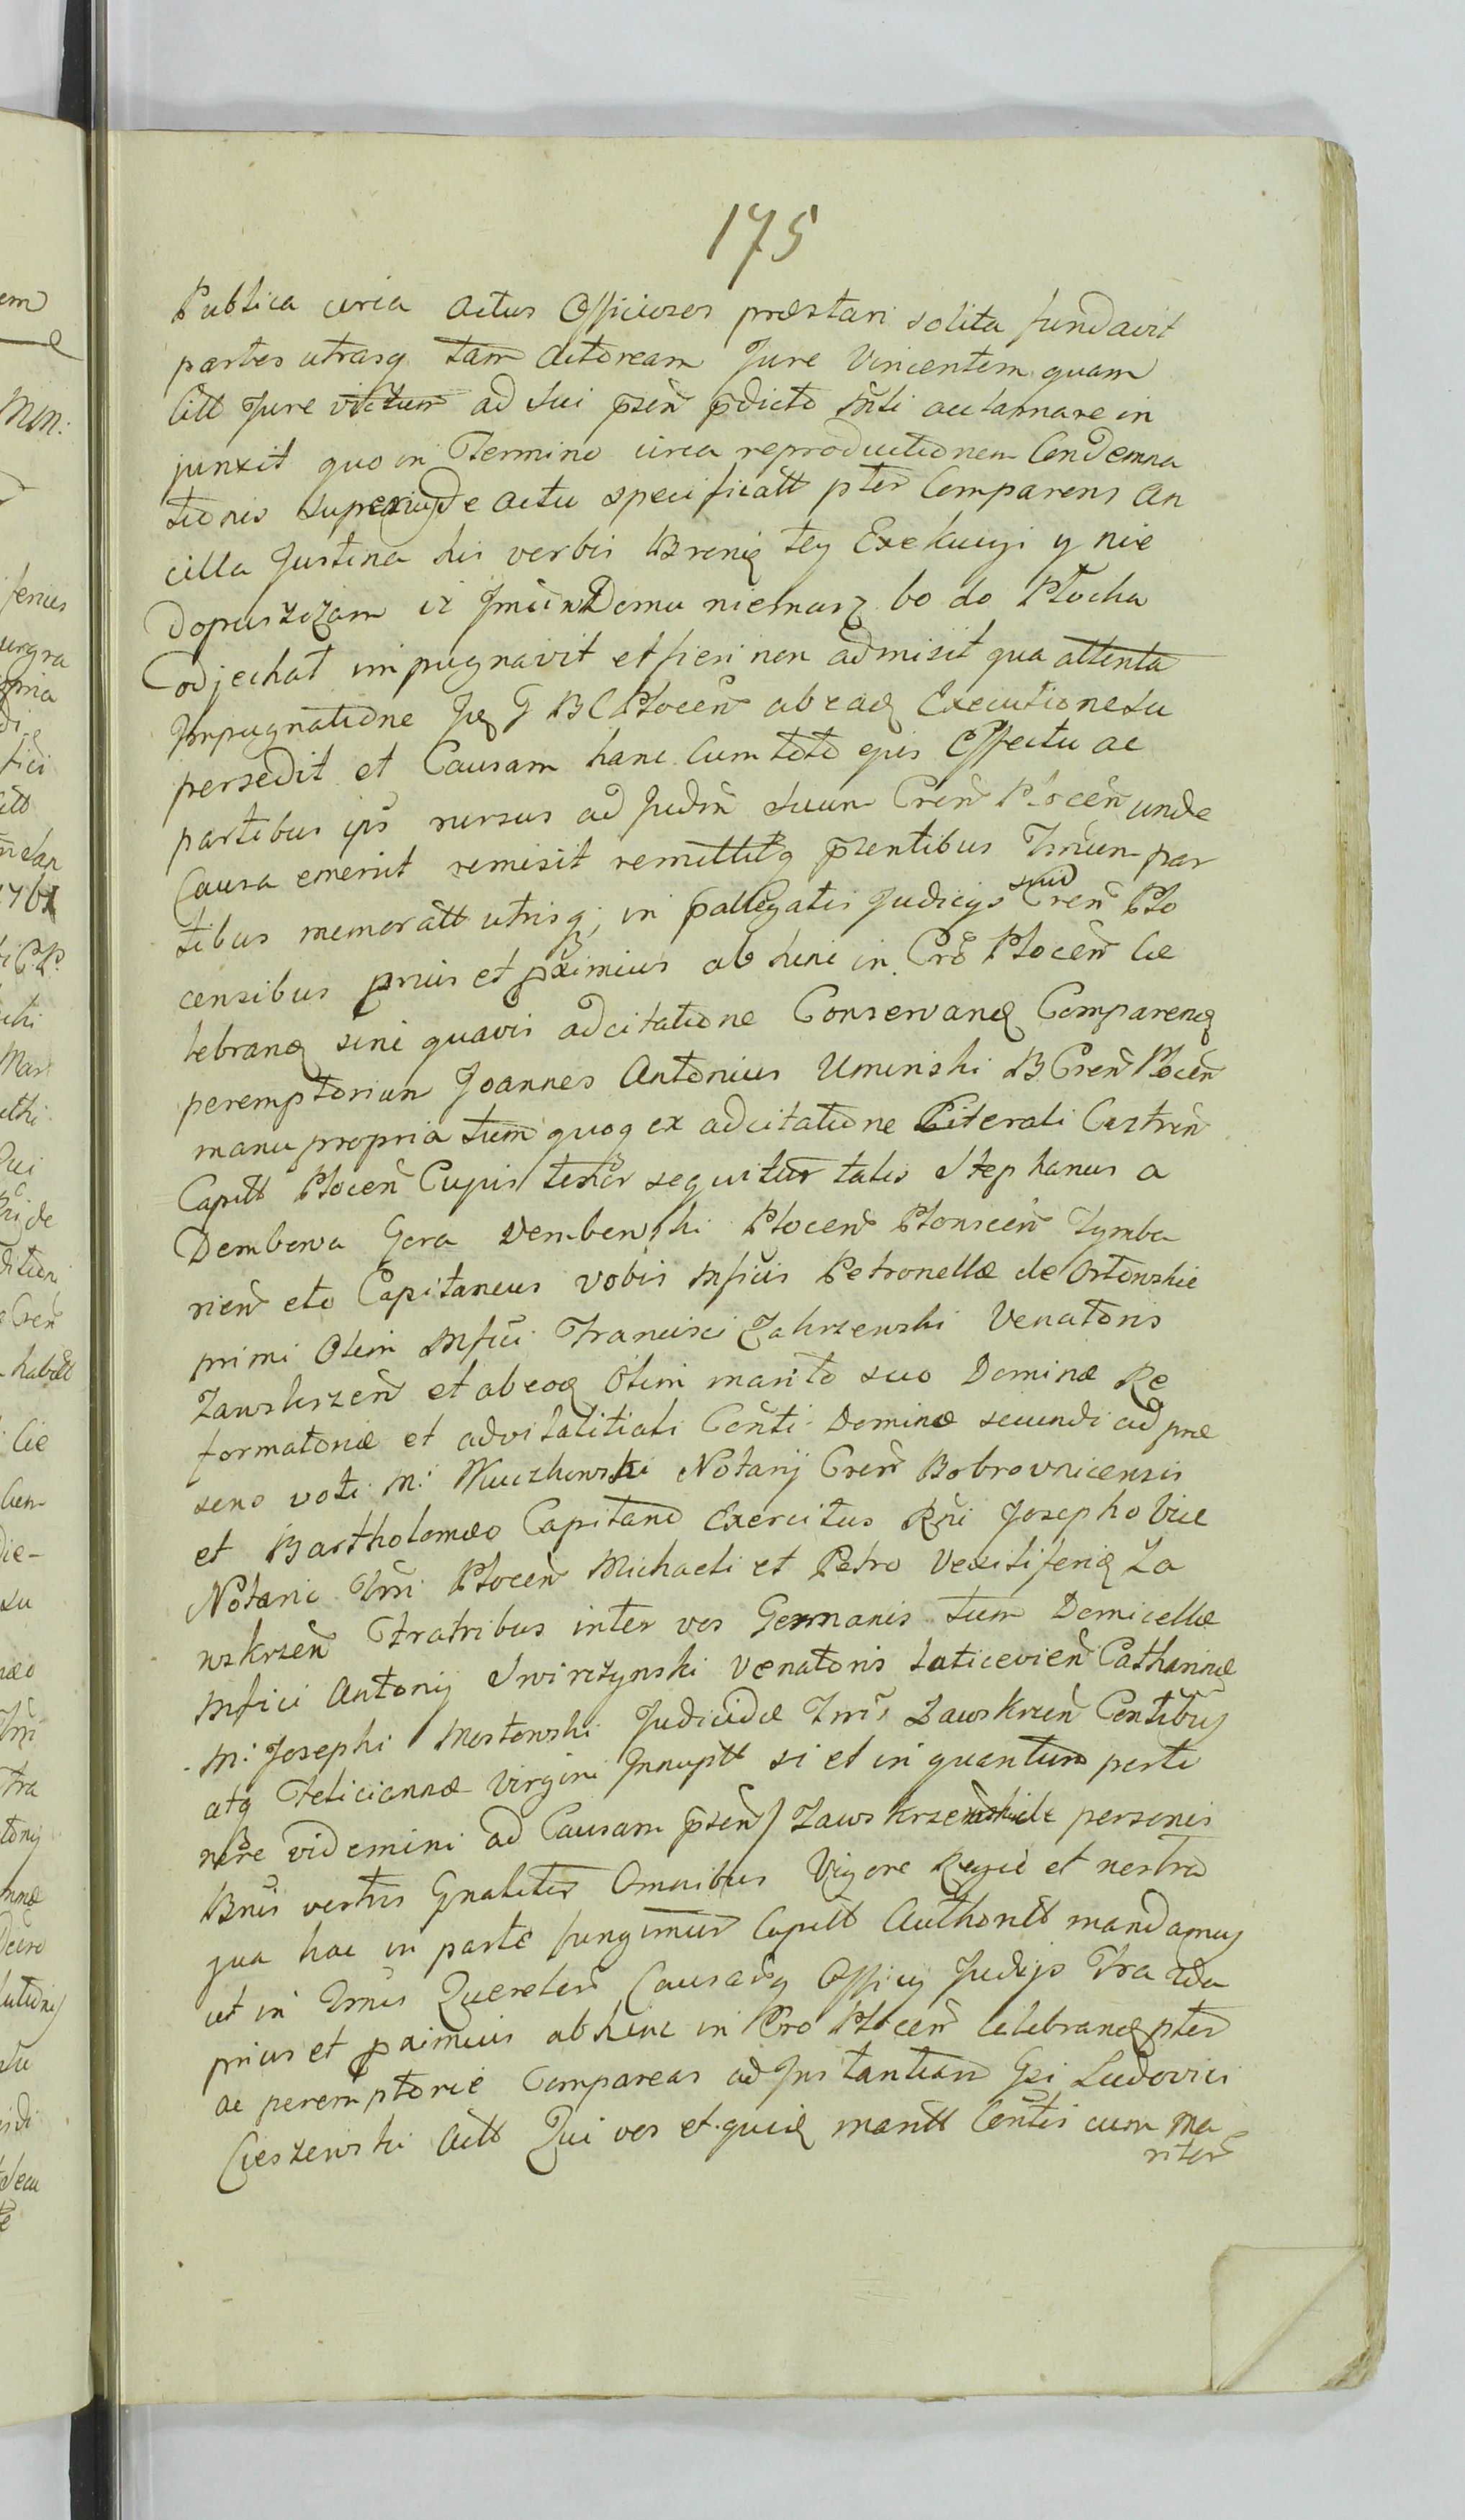 175
Publica circa actus Officiosos præstari solita fundavit
partes utrasq tam Actoream Jure Vincentem quam
Citt Jure victum ad sui pñsen pdicto Mñti acclamare in
junxit quo in Termino circa reproductionem Condemna
tionis superinde actu specificatt pter Comparens An
cilla Justina his verbis Bronię tey Exekucyi y nie
dopuszczam iż Jmści w Domu niemasz bo do Płocka
odjechał impugnavit et fieri non admisit qua attenta
Impugnatione Jq G B C Plocen ab eadq Executione su
persedit et Causam hanc Cum toto ejus Effectu ac
partibus ips rursus ad Judm suum Cren Plocen unde
Causa emersit remisit remittitq pñsentibus Tmum par
tibus memoratt utrisq; in pallegatis Judicys suis Cren Plo
censibus prius et pximius ab hinc in Cro Plocen Ce
lebrand sine quavis adcitatione Conservand Comparend
peremptorium Joannes Antonius Uminski B Cren Plocen
manu propria tum quoq ex adcitatione Literali Castren
Capitt Plocen Cujus tenor sequitur talis Stephanus a
Dembowa Gora Dembowski Plocen Plonscen Tymba
rien etc Capitaneus vobis Mficis Petronellæ de Ostowskie
primi Olim Mfici Francisci Zakrzewski Venatoris
Zawskrzen et ab eoq Olim marito suo Dominæ Re
formatoriæ et advitalitiali Conti Dominæ secundi ad præ
sens voti M: Kuczkowski Notarij Cren Bobrovnicensis
et Bartholomæo Capitano Exercitus Rni Josepho Vice
Notario Tmi Plocen Michaeli et Petro Vexiliferiq Za
wskrzen Fratribus inter vos Germanis tum Domicellæ
Mfici Antonij Swirczynski Venatoris Laticevien Catharinæ
M: Josephi Mostowski Judicidæ Tmis Zawskrzen Contibus
atq Feliciannæ Virgini Innuptt si et in quantum perti
nere videmini ad Causam pñsen Zawskrzen personis
Bnis vestris Gnaliter Omnibus Vigore Regio et nostra
qua hac in parte fungimur Capitt Authoritt mandamus
ut in Tmis Querelen Causarq Officij Judijs
prius et pximius ab hinc in Cro Plocen Celebrand pter
ac peremptorie Compareas ad Instantiam Gsi Ludovici
Cieszewski Actt Qui vos et quidq maritt Contis cum ma
ritor